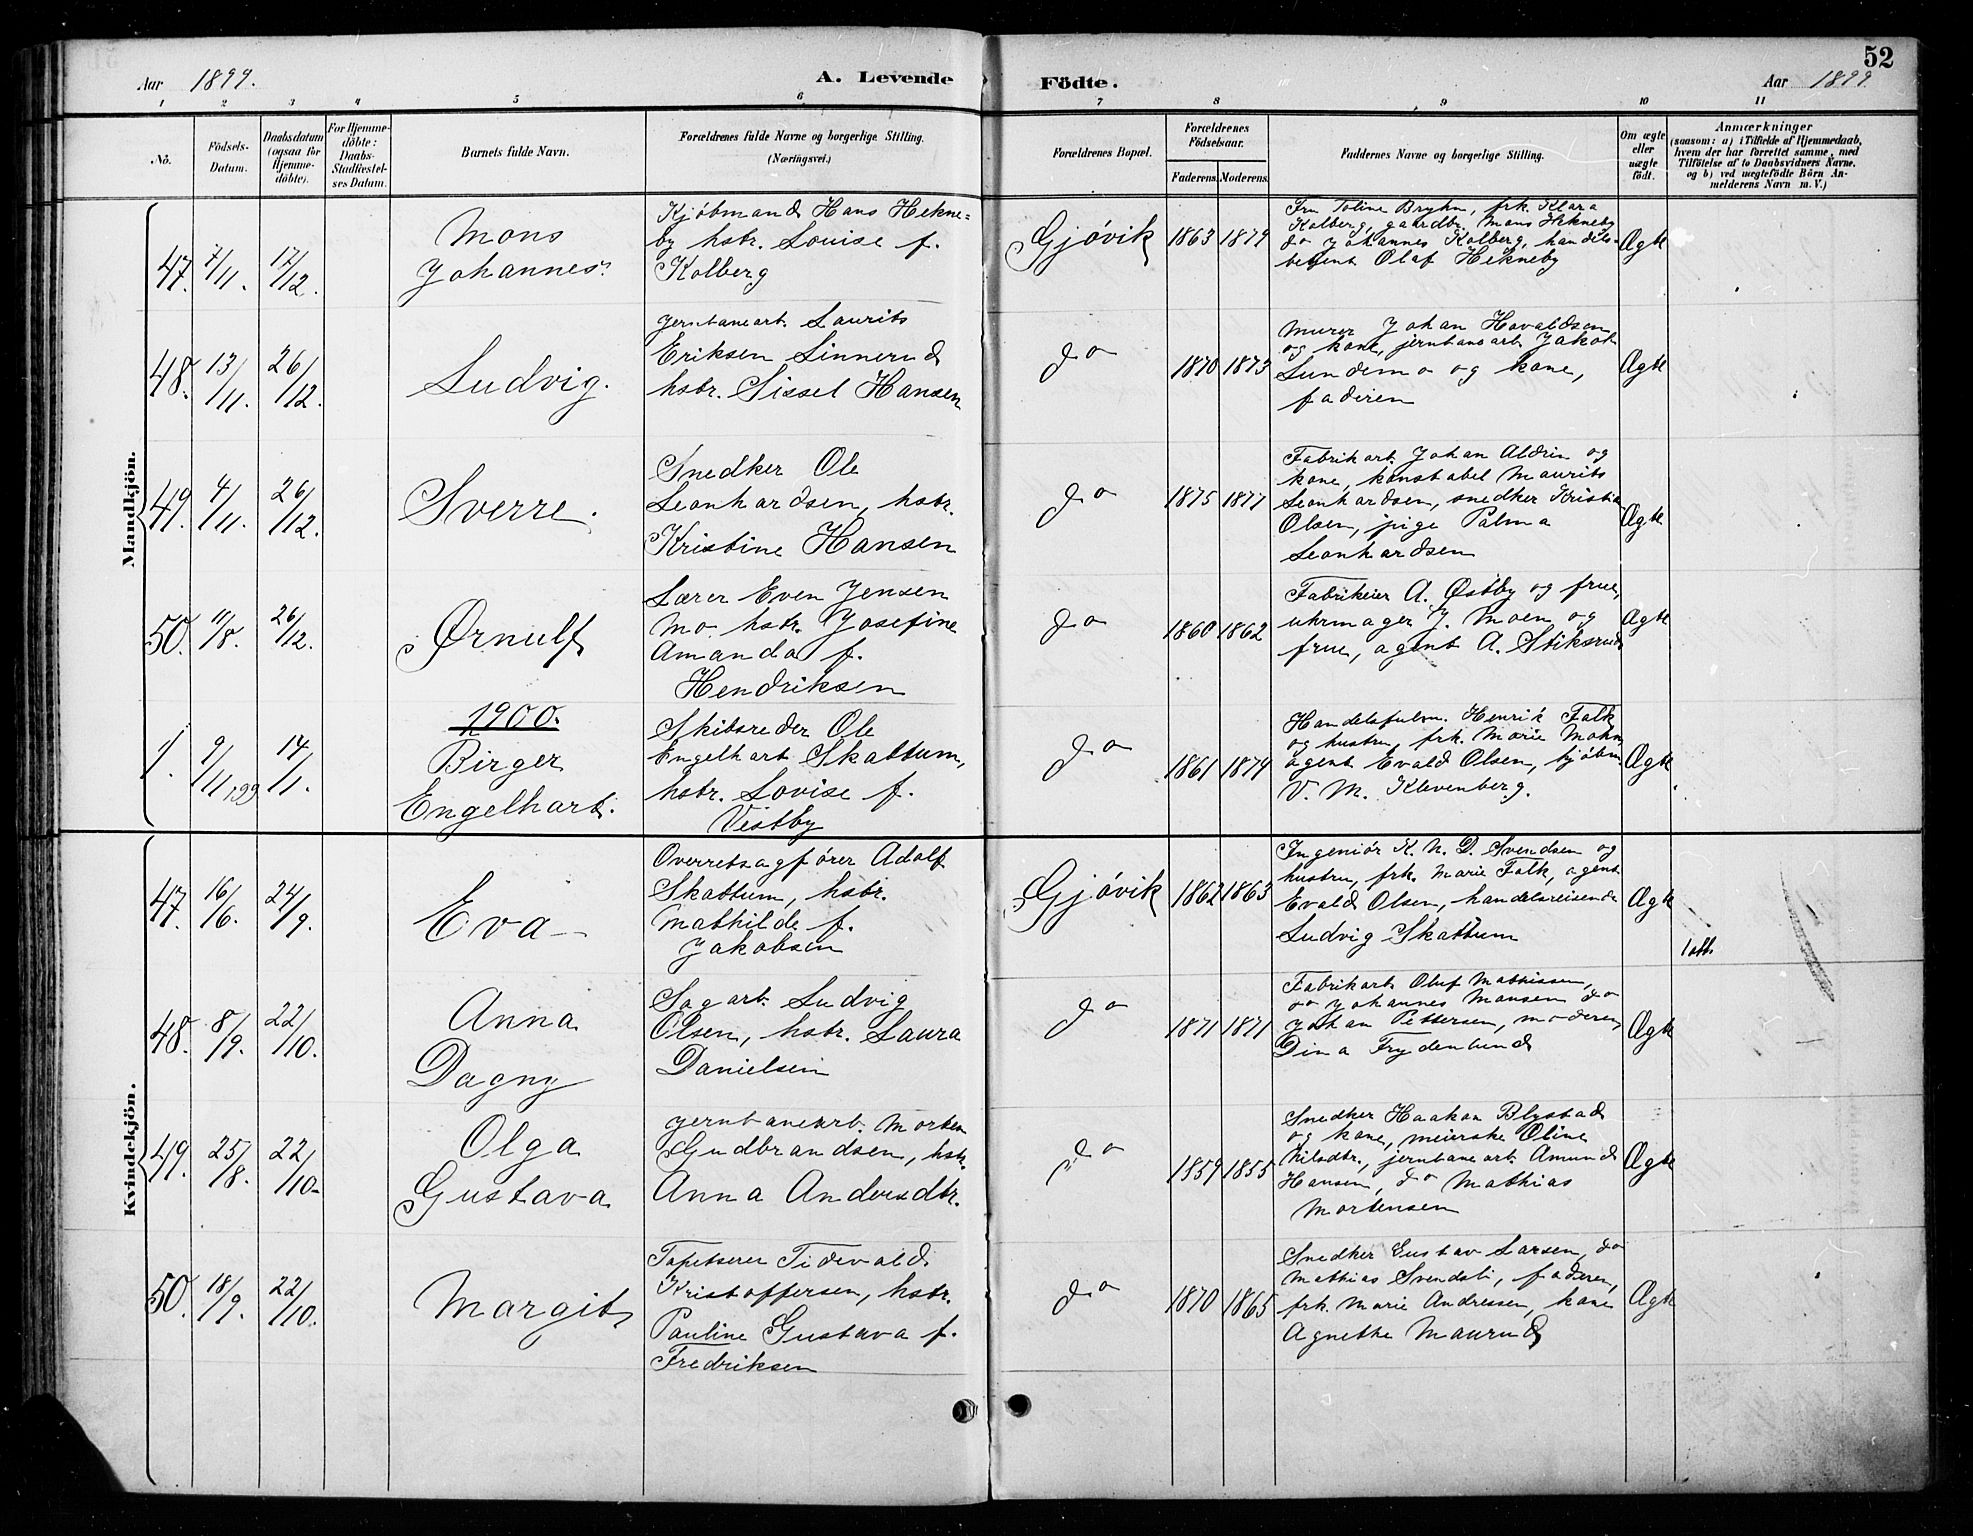 52
Aar 1899. A. Levende Födte. Aar 1899
1 2 3 4 5 6 7 8 9 10 11
No. Födsels-Datum. Daabsdatum (ogsaa for Hjemme-döbte). For Hjemme-döbte: Daabs-Stadfæstel-ses Datum. Barnets fulde Navn. Forældrenes fulde Navne og borgerlige Stilling. (Næringsvei.) Forældrenes Bopæl. Forældrenes Födselsaar. Faderens. Moderens. Faddernes Navne og borgerlige Stilling. Om ægte eller uægte födt. Anmærkninger (saasom: a) i Tilfælde af Hjemmedaab, hvem der har forrettet samme, med Tilföielse af to Daabsvidners Navne. og b) ved uægtefödte Börn An-melderens Navn m. V.)
Mandkjön.
47. 7/11. 17/12. Mons Johannes. Kjøbmand Hans Hekne-
by hstr. Louise f.
Kolberg
Gjövik 1863 1879 Fru Toline Bryhn, frk. Klara
Kolberg, gaardbr. Mons Hekneby
do Johannes Kolberg, handels-
betjent Olaf Hekneby
Ægte
48. 13/11. 26/12. Ludvig. Jernbanearb. Laurits
Eriksen Sinnerud
hstr. Sissel Hansen
do 1870 1873 Murer Johan Hovaldsen
og kone, jernbanearb. Jakob
Sundemo og kone,
faderen
Ægte
49. 4/11. 26/12. Sverre. Snedker Ole
Leonhardsen, hstr.
Kristine Hansen
do 1875 1877 Fabrikarb. Johan Aldrin og
kone, konstabel Maurits
Leonhardsen, snedker Kristian
Olsen, pige Palma
Leonhardsen
Ægte
50. 11/8. 26/12. Ørnulf Lærer Even Jensen
Mo hstr. Josefine
Amanda f.
Hendriksen
do 1860 1862 Fabrikeier A. Østby og frue,
uhrmager J. Moen og
frue, agent A. Stiksrud
Ægte
1900.
1. 9/11 199 14/1. Birger Engelhart. Skibsreder Ole
Engelhart Skattum,
hstr. Lovise f.
Vestby
do 1861 1874 Handelsfulm. Henrik Falk
og hustru, frk. Marie Mohn,
agent Evald Olsen, kjøbm.
V. M. Klevenberg.
Ægte
Kvindekjön.
47. 16/6. 24/9. Eva Overretssagfører Adolf
Skattum, hstr.
Mathilde f.
Jakobsen
Gjövik 1862 1863 Ingeniør K. N. D. Svendsen og
hustru, frk. Marie Falk, agent
Evald Olsen, handelsreisende
Ludvig Skattum
Ægte 1 att.
48. 8/9. 22/10. Anna Dagny Sagarb. Ludvig
Olsen, hstr. Laura
Danielsen
do 1871 1871 Fabrikarb. Oluf Mathissen,
do Johannes Monsen do
Johan Pettersen, moderen,
Dina Frydenlund
Ægte
49. 25/8. 22/10. Olga Gustava Jernbanearb. Morten
Gudbrandsen, hstr.
Anna Andersdtr.
do 1859 1855 Snedker Haakon Blystad
og kone, meierske Oline
Nilsdtr., jernbanearb. Amund
Hansen, do Mathias
Mortensen
Ægte
50. 18/9. 22/10. Margit Tapetserer Tidevald
Kristoffersen, hstr.
Pauline Gustava f.
Fredriksen
do 1870 1865 Snedker Gustav Larsen, do
Mathias Svendsli, faderen,
frk. Marie Andressen, kone
Agnethe Maurud
Ægte